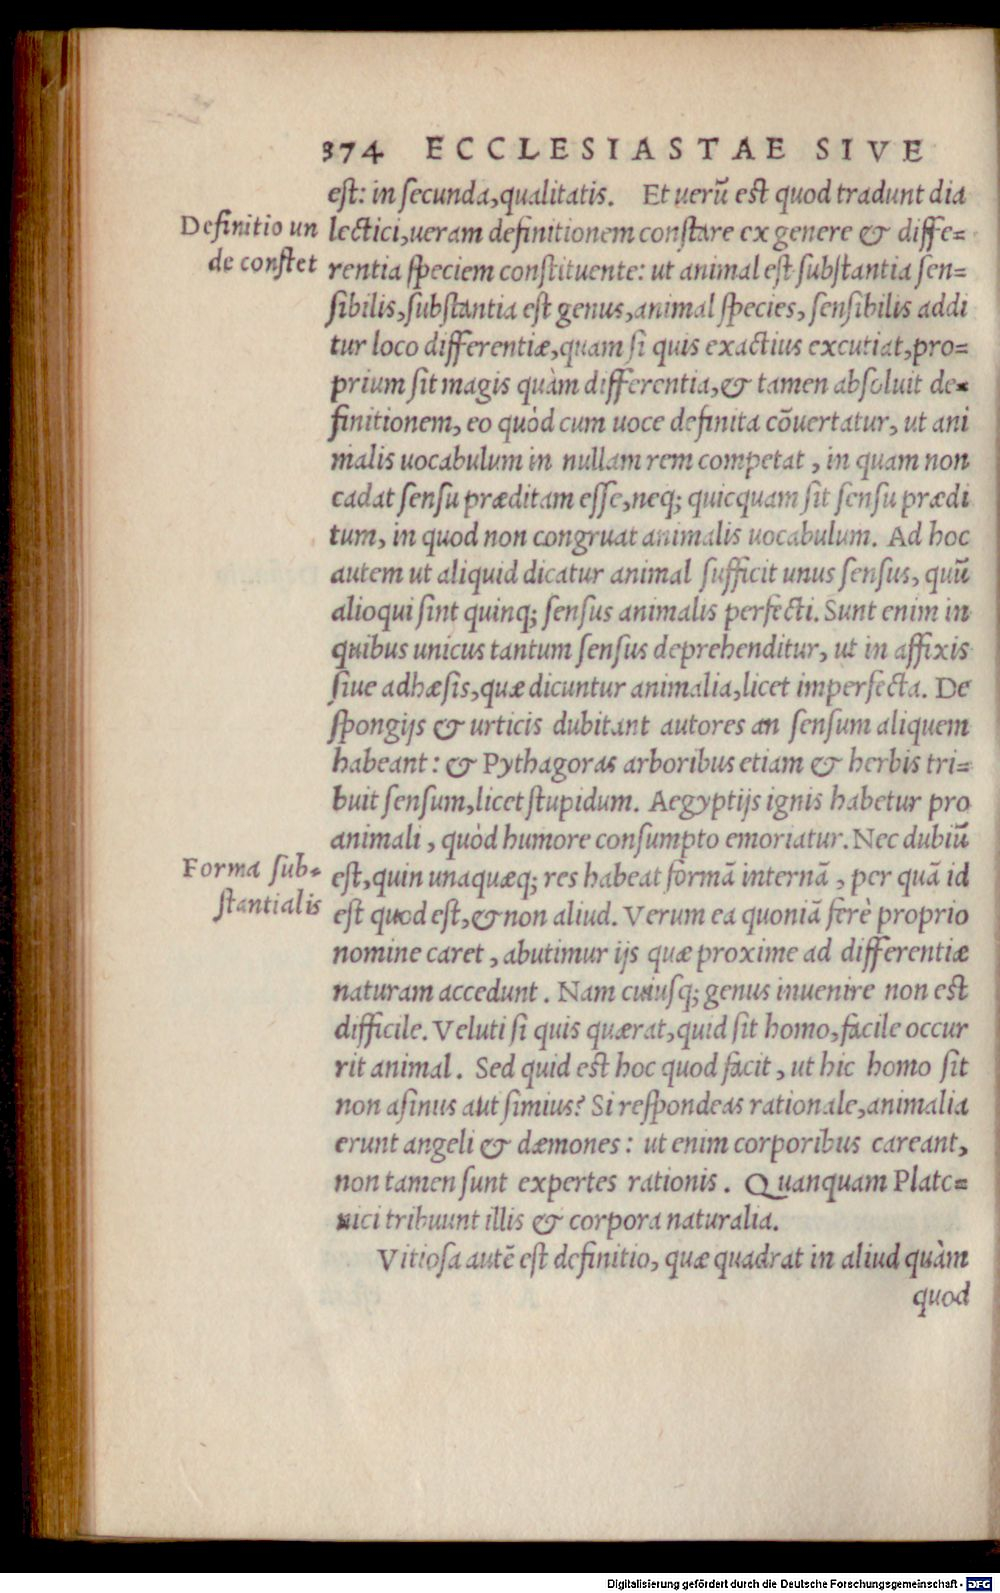 374 ECCLESIASTAE SIVE
est: in secunda, qualitatis. Et uerũ est quod tradunt dia
Definitio un
de constet
lectici, ueram definitionem constare ex genere & diffe=
rentia speciem constituente: ut animal est substantia sen=
sibilis, substantia est genus, animal species, sensibilis addi
tur loco differentiæ, quam si quis exactius excutiat, pro=
prium sit magis quàm differentia, & tamen absoluit de=
finitionem, eo quòd cum uoce definita cõuertatur, ut ani
malis uocabulum in nullam rem competat, in quam non
cadat sensu præditam esse, neq; quicquam sit sensu prædi
tum, in quod non congruat animalis uocabulum. Ad hoc
autem ut aliquid dicatur animal sufficit unus sensus, quũ
alioqui sint quinq; sensus animalis perfecti. Sunt enim in
quibus unicus tantum sensus deprehenditur, ut in affixis
siue adhæsis, quæ dicuntur animalia, licet imperfecta. De
spongijs & urticis dubitant autores an sensum aliquem
habeant: & Pythagoras arboribus etiam & herbis tri=
buit sensum, licet stupidum. Aegyptijs ignis habetur pro
animali, quòd humore consumpto emoriatur. Nec dubiũ
Forma sub=
stantialis
est, quin unaquæq; res habeat formã internã, per quã id
est quod est, & non aliud. Verum ea quoniã ferè proprio
nomine caret, abutimur ijs quæ proxime ad differentiæ
naturam accedunt. Nam cuiusq; genus inuenire non est
difficile. Veluti si quis quærat, quid sit homo, facile occur
rit animal. Sed quid est hoc quod facit, ut hic homo sit
non asinus aut simius? Si respondeas rationale, animalia
erunt angeli & dæmones: ut enim corporibus careant,
non tamen sunt expertes rationis. Quanquam Plato=
nici tribuunt illis & corpora naturalia.
Vitiosa autẽ est definitio, quæ quadrat in aliud quàm
quod
Digitalisierung gefördert durch die Deutsche Forschungsgemeinschaft - DFG